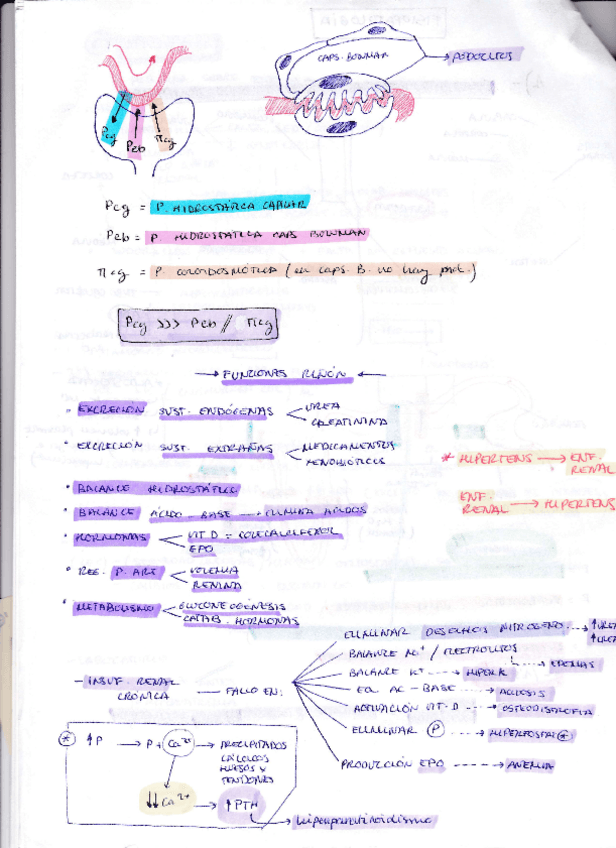 CAPS. BOWMAN → PODOCITOS
Pcg Pcb πcg
Pcg = P. HIDROSTÁTICA CAPILAR
Pcb = P. HIDROSTÁTICA CAPS BOWMAN
πcg = P. COLOIDOSMÓTICA (en caps. B. no hay prot.)
Pcg >>> Pcb // πcg
→ FUNCIONES RIÑÓN ←
• EXCRECIÓN SUST. ENDÓGENAS < UREA
CREATININA
• EXCRECIÓN SUST. EXTRAÑAS < MEDICAMENTOS
XENOBIÓTICOS
* HIPERTENS → ENF. RENAL
ENF. RENAL → HIPERTENS
• BALANCE HIDROSTÁTICO
• BALANCE ÁCIDO-BASE → ELIMINA ÁCIDOS
• HORMONAS < VIT. D = COLECALCIFEROL
EPO
• REG. P. ART < VOLEMIA
RENINA
• METABOLISMO < GLUCONEOGÉNESIS
CATAB. HORMONAS
- INSUF. RENAL CRÓNICA — FALLO EN:
ELIMINAR DESECHOS NITROGENO ---→ ↑UREA
BALANCE / ELECTROLITOS → EDEMAS
BALANCE K⁺ ---→ HIPERK
EQ. AC-BASE ---→ ACIDOSIS
ACTIVACIÓN VIT. D ---→ OSTEODISTROFIA
ELIMINAR P ---→ HIPERFOSFAT *
PRODUCCIÓN EPO ---→ ANEMIA
* ↑P → P + Ca²⁺ → PRECIPITADOS
CÁLCULOS
HUESOS Y
TENDONES
↓↓Ca²⁺ → ↑PTH
→ hiperparatiroidismo